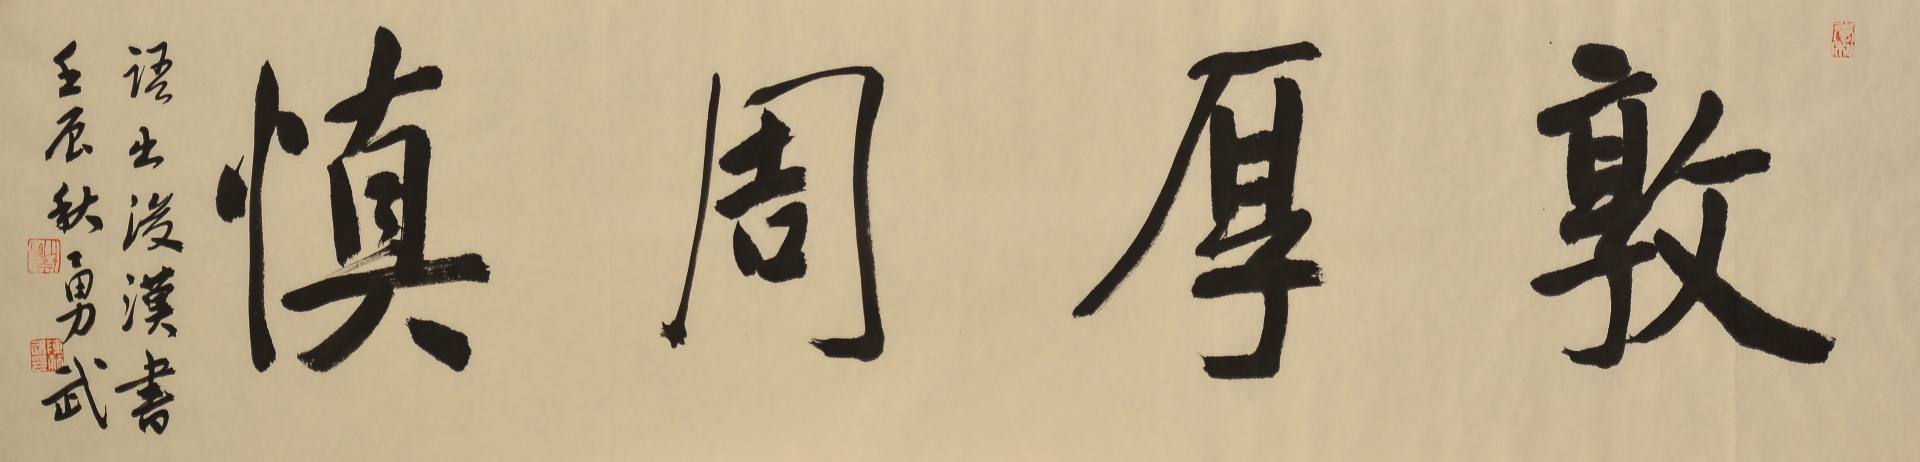 敦厚周慎
語出後漢書
壬辰秋勇武